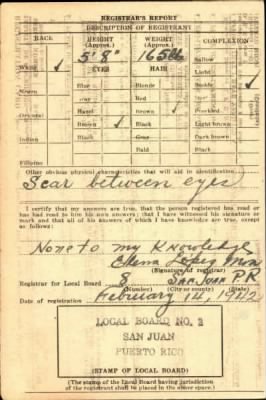 REGISTRAR'S REPORT
DESCRIPTION OF REGISTRANT
RACE HEIGHT (Approx.) WEIGHT (Approx.) COMPLEXION
5' 8" 165
Sallow
White ✓ EYES HAIR Light
Blue Blonde ✓
Negro Gray Red
Hazel Brown Freckled
Oriental Brown ✓ Black ✓ Light brown
Black Gray Dark brown
Indian Bald Black
Filipino
Other obvious physical characteristics that will aid in identification
Scar between eyes
I certify that my answers are true; that the person registered has read or
has had read to him his own answers; that I have witnessed his signature
or mark and that all of his answers of which I have knowledge are true, except
as follows:
None to my Knowledge
Elena López
(Signature of registrar)
Registrar for Local Board 8 San Juan P.R.
(Number) (City or county) (State)
Date of registration February 14, 1942
LOCAL BOARD NO. 2
SAN JUAN
PUERTO RICO
(STAMP OF LOCAL BOARD)
(The stamp of the Local Board having jurisdiction
of the registrant shall be placed in the above space.)